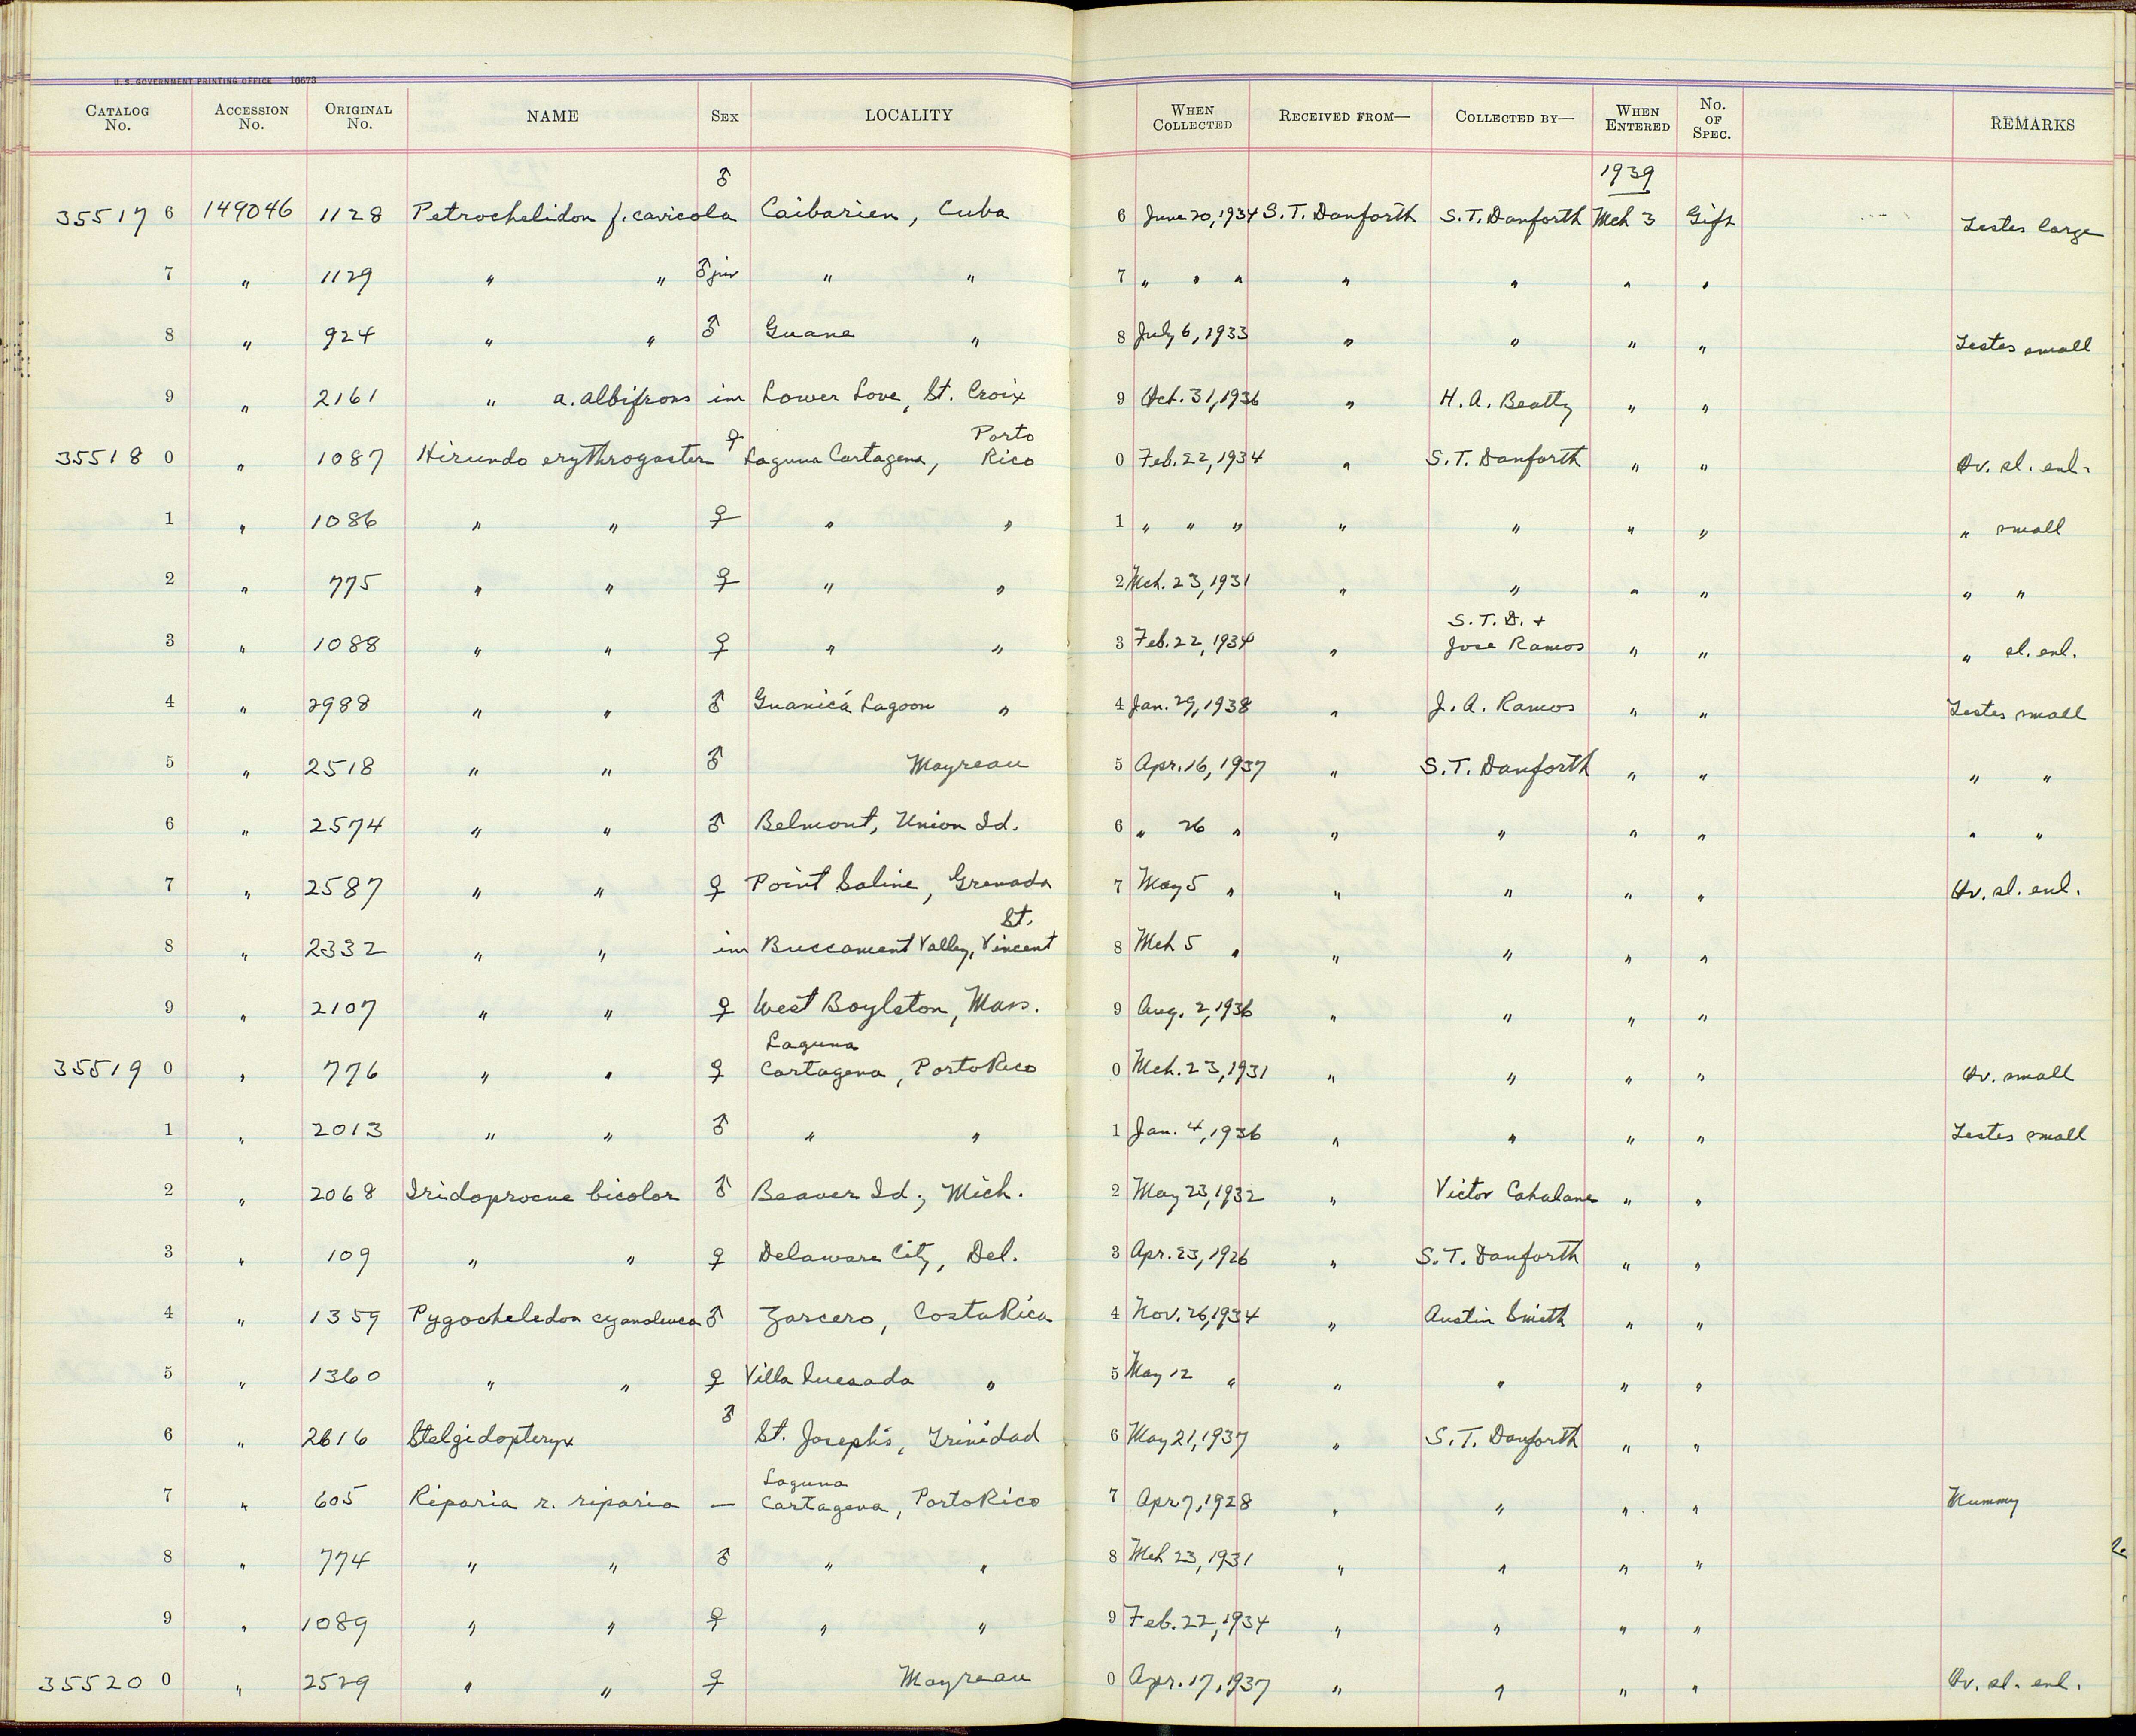 U.S. GOVERNMENT PRINTING OFFICE 10673
CATALOG No. ACCESSION No. ORIGINAL No. NAME SEX LOCALITY WHEN COLLECTED RECEIVED FROM— COLLECTED BY— WHEN ENTERED No. OF SPEC. REMARKS
1939
35517 6 149046 1128 Petrochelidon f. cavicola ♂ Caibarien, Cuba 6 June 20, 1934 S.T. Danforth S.T. Danforth Mch 3 Gift Testes large
7 " 1129 " " ♂ juv " " 7 " " " " " " "
8 " 924 " " ♂ Guane " 8 July 6, 1933 " " " " Testes small
9 " 2161 " a. albifrons im Lower Love, St. Croix 9 Oct. 31, 1936 " H.A. Beatty " "
35518 0 " 1087 Hirundo erythrogaster ♀ Laguna Cartagena, Porto Rico 0 Feb. 22, 1934 " S.T. Danforth " " Ov. sl. enl.
1 " 1086 " " ♀ " " 1 " " " " " " " " small
2 " 775 " " ♀ " " 2 Mch. 23, 1931 " " " " " "
3 " 1088 " " ♀ " " 3 Feb. 22, 1934 " S.T.D. + Jose Ramos " " " sl. enl.
4 " 2988 " " ♂ Guanicá Lagoon " 4 Jan. 29, 1938 " J.A. Ramos " " Testes small
5 " 2518 " " ♂ Mayreau 5 Apr. 16, 1937 " S.T. Danforth " " " "
6 " 2574 " " ♂ Belmont, Union Id. 6 " 26 " " " " " " "
7 " 2587 " " ♀ Point Saline, Grenada 7 May 5 " " " " " Ov. sl. enl.
8 " 2332 " " im Buccament Valley, St. Vincent 8 Mch 5 " " " " "
9 " 2107 " " ♀ West Boylston, Mass. 9 Aug. 2, 1936 " " " "
35519 0 " 776 " " ♀ Laguna Cartagena, Porto Rico 0 Mch. 23, 1931 " " " " Ov. small
1 " 2013 " " ♂ " " 1 Jan. 4, 1936 " " " " Testes small
2 " 2068 Iridoprocne bicolor ♂ Beaver Id., Mich. 2 May 23, 1932 " Victor Cahalane " "
3 " 109 " " ♀ Delaware City, Del. 3 Apr. 23, 1926 " S.T. Danforth " "
4 " 1359 Pygocheledon cyanoleuca ♂ Zarcero, Costa Rica 4 Nov. 26, 1934 " Austin Smith " "
5 " 1360 " " ♀ Villa Quesada " 5 May 12 " " " " "
6 " 2616 Stelgidopteryx ♂ St. Joseph's, Trinidad 6 May 21, 1937 " S.T. Danforth " "
7 " 605 Riparia r. riparia — Laguna Cartagena, Porto Rico 7 Apr 7, 1928 " " " " Mummy
8 " 774 " " ♂ " " 8 Mch 23, 1931 " " " "
9 " 1089 " " ♀ " " 9 Feb. 22, 1934 " " " "
35520 0 " 2529 " " ♀ Mayreau 0 Apr. 17, 1937 " " " " Ov. sl. enl.